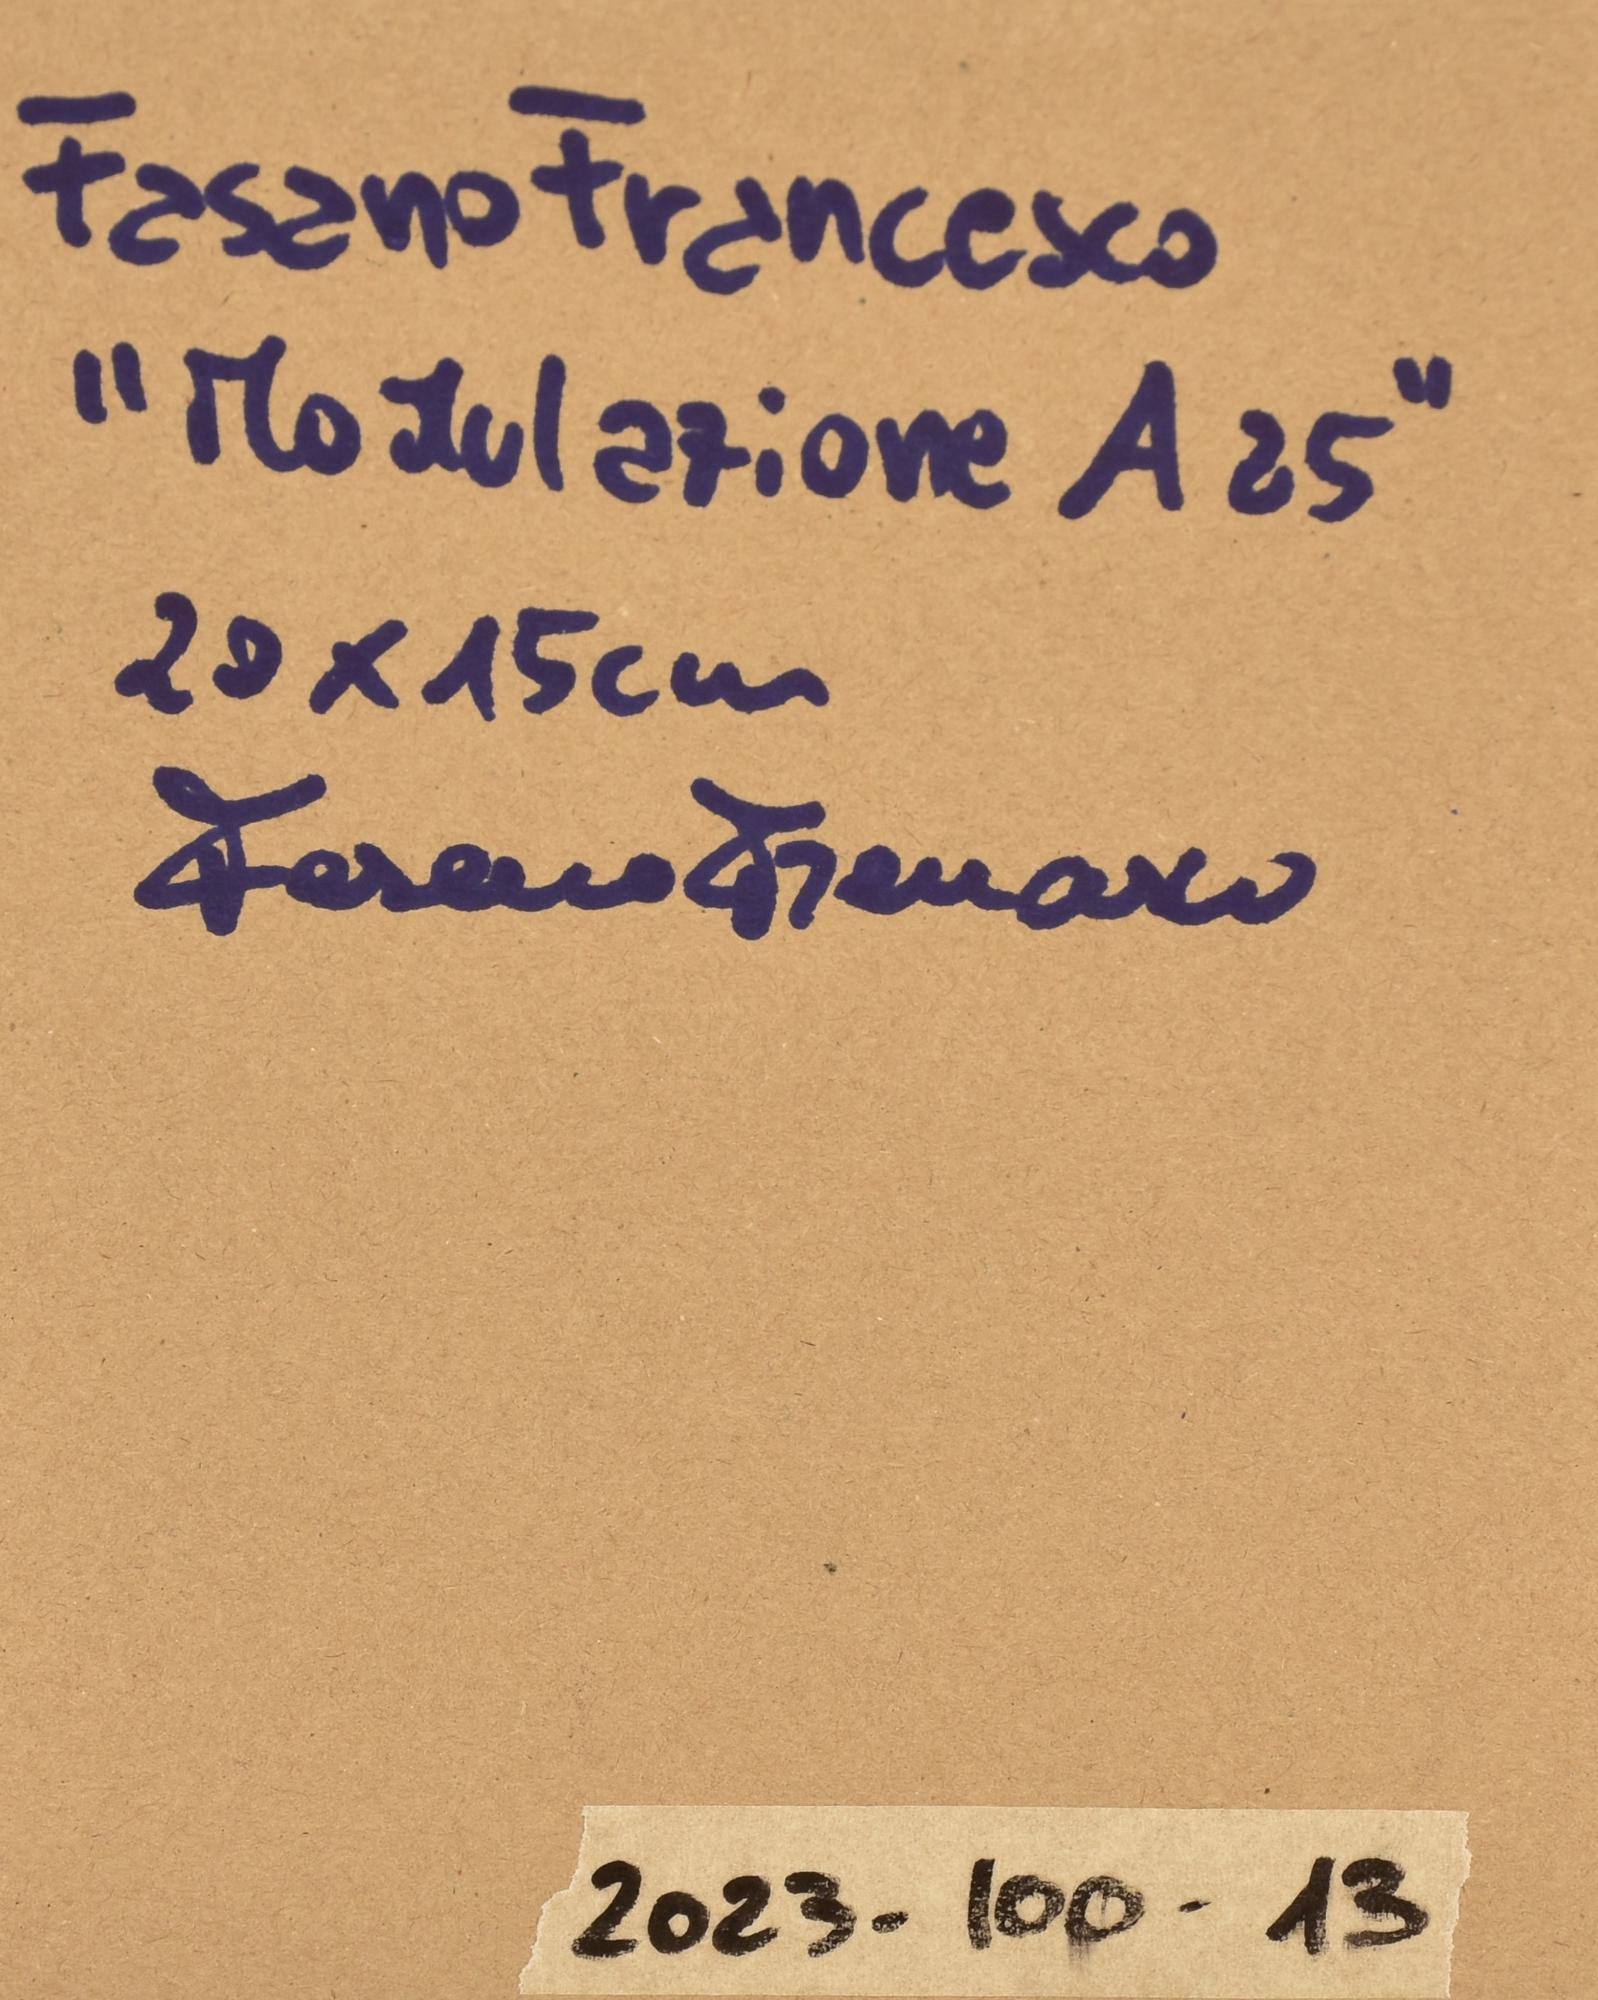 Fasano Francesco
"Modulazione A 25"
20 x 15 cm
Fasano Francesco
2023 - 100 - 13